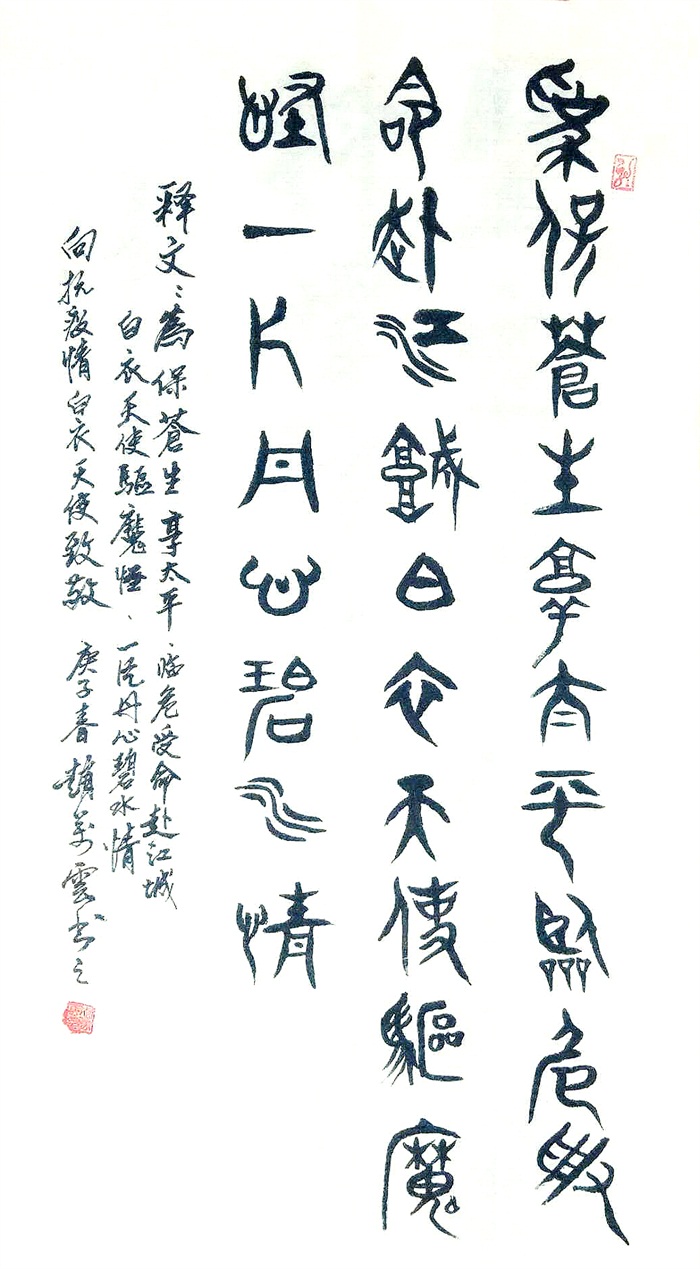 為保蒼生享太平臨危受
命赴江城白衣天使驅魔
怪一片丹心碧水情
释文：為保蒼生享太平、临危受命赴江城
白衣天使驅魔怪、一片丹心碧水情
向抗疫情白衣天使致敬 庚子春 趙萬雲书之